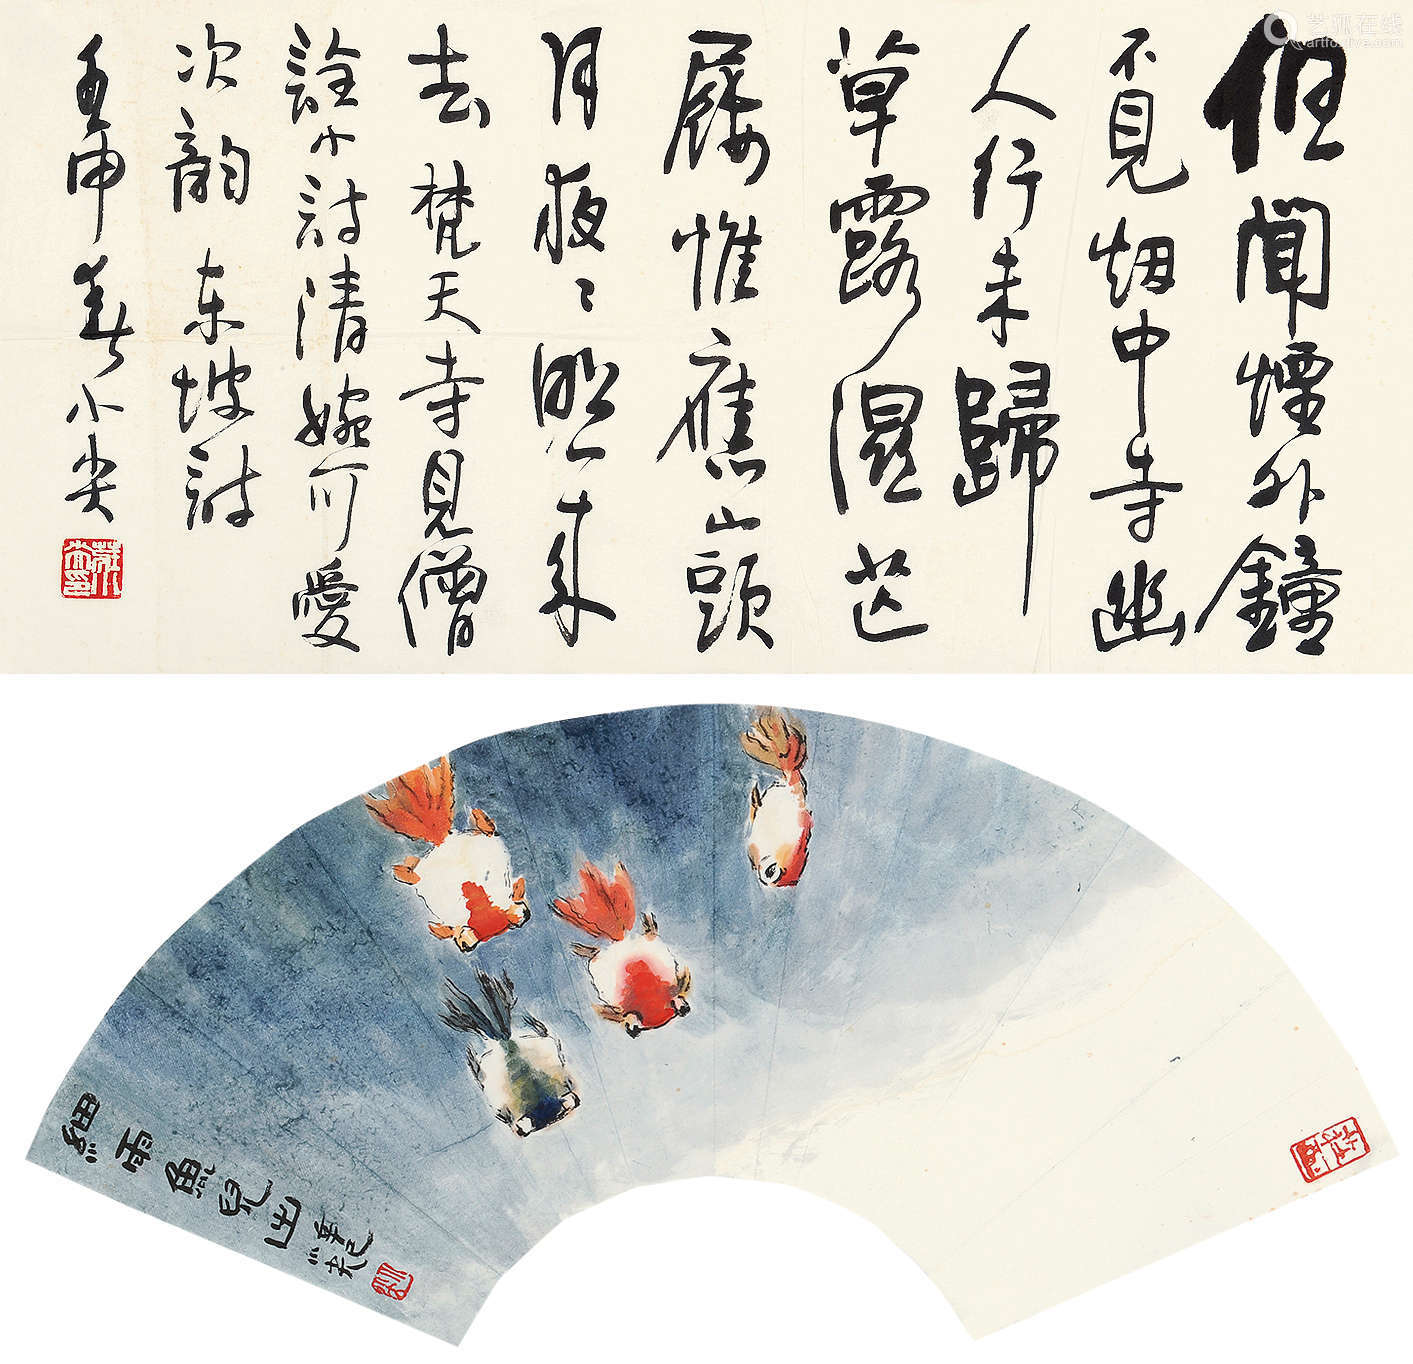 但聞煙外鐘
不見烟中寺幽
人行未歸
草露濕芒
屨惟應山頭
月夜〻照来
去梵天寺見僧
詮小詩清婉可愛
次韵東坡詩
壬申春小
細雨魚兒出
辛巳小
艺狐在线
artfoxlive.com